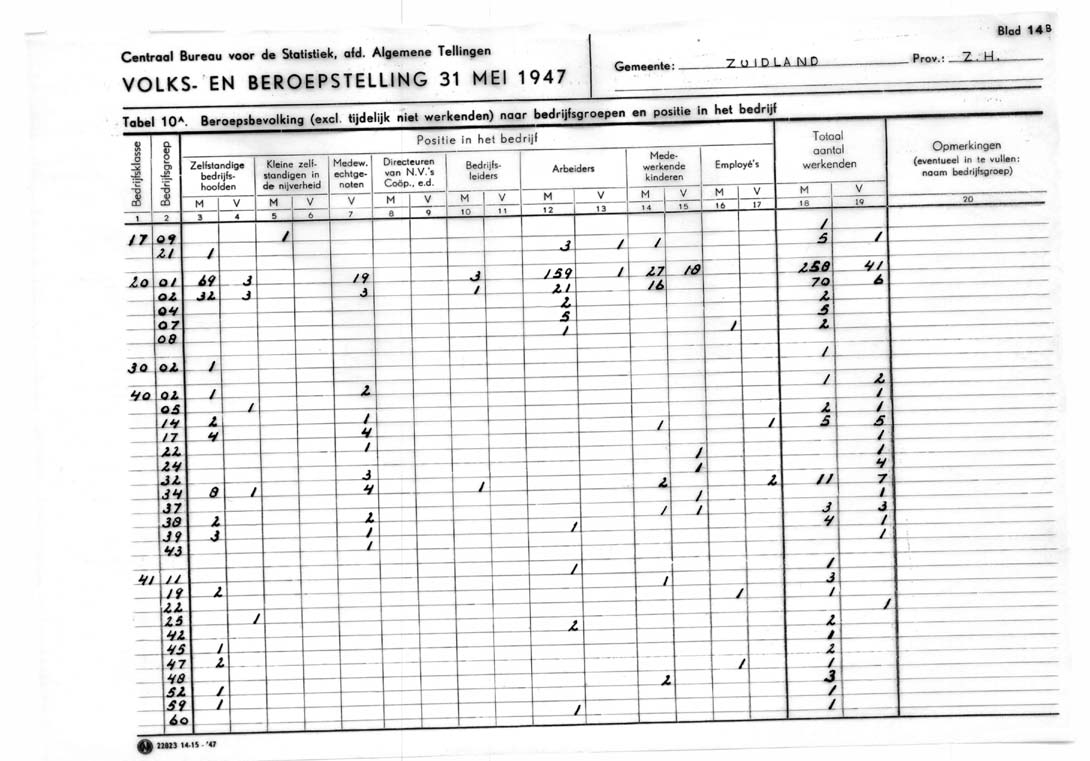 Blad 14B
Centraal Bureau voor de Statistiek, afd. Algemene Tellingen
VOLKS- EN BEROEPSTELLING 31 MEI 1947
Gemeente: ZUIDLAND Prov.: Z.H.
Tabel 10A. Beroepsbevolking (excl. tijdelijk niet werkenden) naar bedrijfsgroepen en positie in het bedrijf
Bedrijfsklasse Bedrijfsgroep Positie in het bedrijf Totaal aantal werkenden Opmerkingen (eventueel in te vullen: naam bedrijfsgroep)
Zelfstandige bedrijfs-hoofden Kleine zelf-standigen in de nijverheid Medew. echtge-noten Directeuren van N.V.'s Coöp., e.d. Bedrijfs-leiders Arbeiders Mede-werkende kinderen Employé's
M V M V V M V M V M V M V M V M V
1 2 3 4 5 6 7 8 9 10 11 12 13 14 15 16 17 18 19 20
17 09 1 1
21 1 3 1 1 5 1
20 01 69 3 19 3 159 1 27 18 258 41
02 32 3 3 1 21 16 70 6
04 2 2
07 5 5
08 1 1 2
30 02 1 1
40 02 1 2 1 2
05 1 1
14 2 1 2 1
17 4 4 1 1 5 5
22 1 1
24 1 1
32 3 1 4
34 8 1 4 1 2 2 11 7
37 1 1
38 2 2 1 1 3 3
39 3 1 1 4 1
43 1 1
41 11 1 1
19 2 1 3
22 1 1
25 1 1
42 2 2
45 1 1
47 2 2
48 1 1
52 1 2 3
59 1 1
60 1 1
22823 14-15 - '47